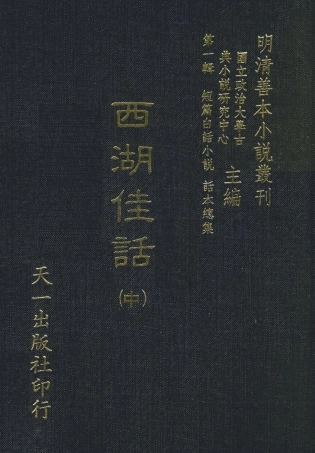 明清善本小說叢刊
國立政治大學古
典小說研究中心
主編
第一輯 短篇白話小說 話本總集
西湖佳話
(中)
天一出版社印行